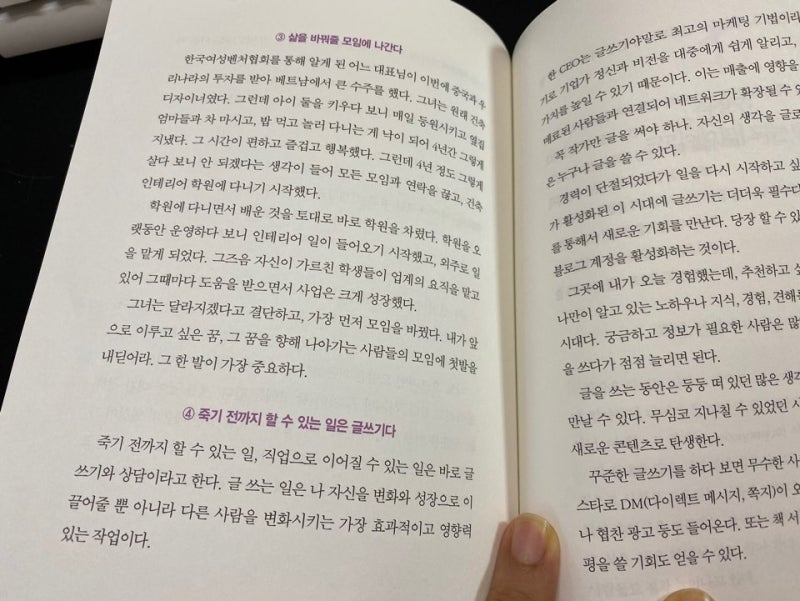 ③ 삶을 바꿔줄 모임에 나간다
한국여성벤처협회를 통해 알게 된 어느 대표님이 이번에 중국과 우
리나라의 투자를 받아 베트남에서 큰 수주를 했다. 그녀는 원래 건축
디자이너였다. 그런데 아이 둘을 키우다 보니 매일 등원시키고 옆집
엄마들과 차 마시고, 밥 먹고 놀러 다니는 게 낙이 되어 4년간 그렇게
지냈다. 그 시간이 편하고 즐겁고 행복했다. 그런데 4년 정도 그렇게
살다 보니 안 되겠다는 생각이 들어 모든 모임과 연락을 끊고, 건축
인테리어 학원에 다니기 시작했다.
학원에 다니면서 배운 것을 토대로 바로 학원을 차렸다. 학원을 오
랫동안 운영하다 보니 인테리어 일이 들어오기 시작했고, 외주로 일
을 맡게 되었다. 그즈음 자신이 가르친 학생들이 업계의 요직을 맡고
있어 그때마다 도움을 받으면서 사업은 크게 성장했다.
그녀는 달라지겠다고 결단하고, 가장 먼저 모임을 바꿨다. 내가 앞
으로 이루고 싶은 꿈, 그 꿈을 향해 나아가는 사람들의 모임에 첫발을
내딛어라. 그 한 발이 가장 중요하다.
④ 죽기 전까지 할 수 있는 일은 글쓰기다
죽기 전까지 할 수 있는 일, 직업으로 이어질 수 있는 일은 바로 글
쓰기와 상담이라고 한다. 글 쓰는 일은 나 자신을 변화와 성장으로 이
끌어줄 뿐 아니라 다른 사람을 변화시키는 가장 효과적이고 영향력
있는 작업이다.
한 CEO는 글쓰기야말로 최고의 마케팅 기법이라
기로 기업가 정신과 비전을 대중에게 쉽게 알리고,
가치를 높일 수 있기 때문이다. 이는 매출에 영향을
매료된 사람들과 연결되어 네트워크가 확장될 수 있
꼭 작가만 글을 써야 하나. 자신의 생각을 글로
은 누구나 글을 쓸 수 있다.
경력이 단절되었다가 일을 다시 시작하고 싶
가 활성화된 이 시대에 글쓰기는 더더욱 필수다
를 통해서 새로운 기회를 만난다. 당장 할 수 있
블로그 계정을 활성화하는 것이다.
그곳에 내가 오늘 경험했는데, 추천하고 싶
나만이 알고 있는 노하우나 지식, 경험, 견해
시대다. 궁금하고 정보가 필요한 사람은 많
을 쓰다가 점점 늘리면 된다.
글을 쓰는 동안은 둥둥 떠 있던 많은 생각
만날 수 있다. 무심코 지나칠 수 있었던 사
새로운 콘텐츠로 탄생한다.
꾸준한 글쓰기를 하다 보면 무수한 사
스타로 DM(다이렉트 메시지, 쪽지)이 오
나 협찬 광고 등도 들어온다. 또는 책 서
평을 쓸 기회도 얻을 수 있다.